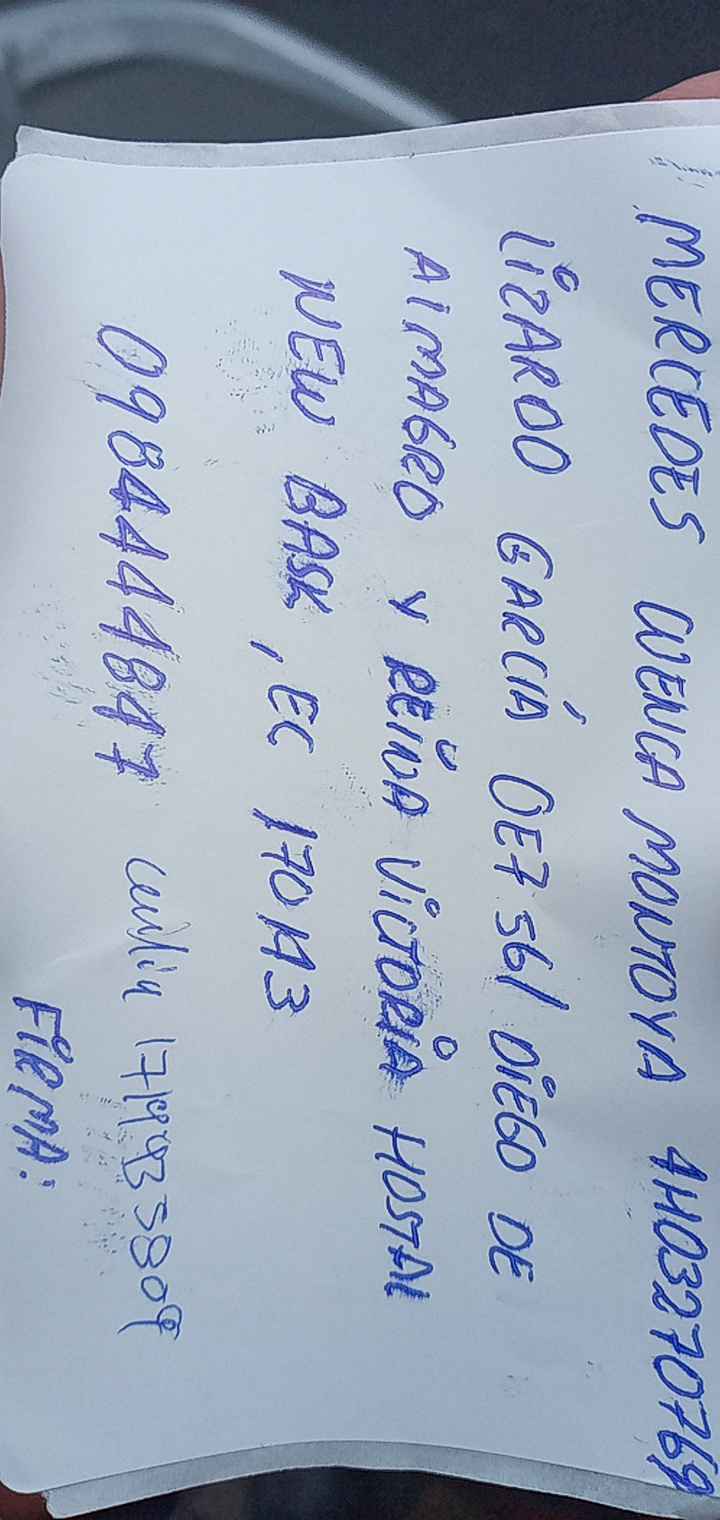 MERCEDES WENCA MONTOYA 4H03270769
LIZARDO GARCÍA OE7 561 DIEGO DE
AlMAGRO Y REINA VICTORIA HOSTAl
NEW BASK, EC 170143
0984444847 1714933809
FIRMA: